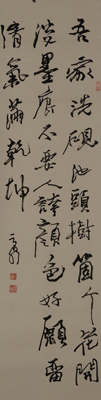 吾家洗硯池頭樹箇个花開
淡墨痕不要人誇顏色好願留
清氣滿乾坤